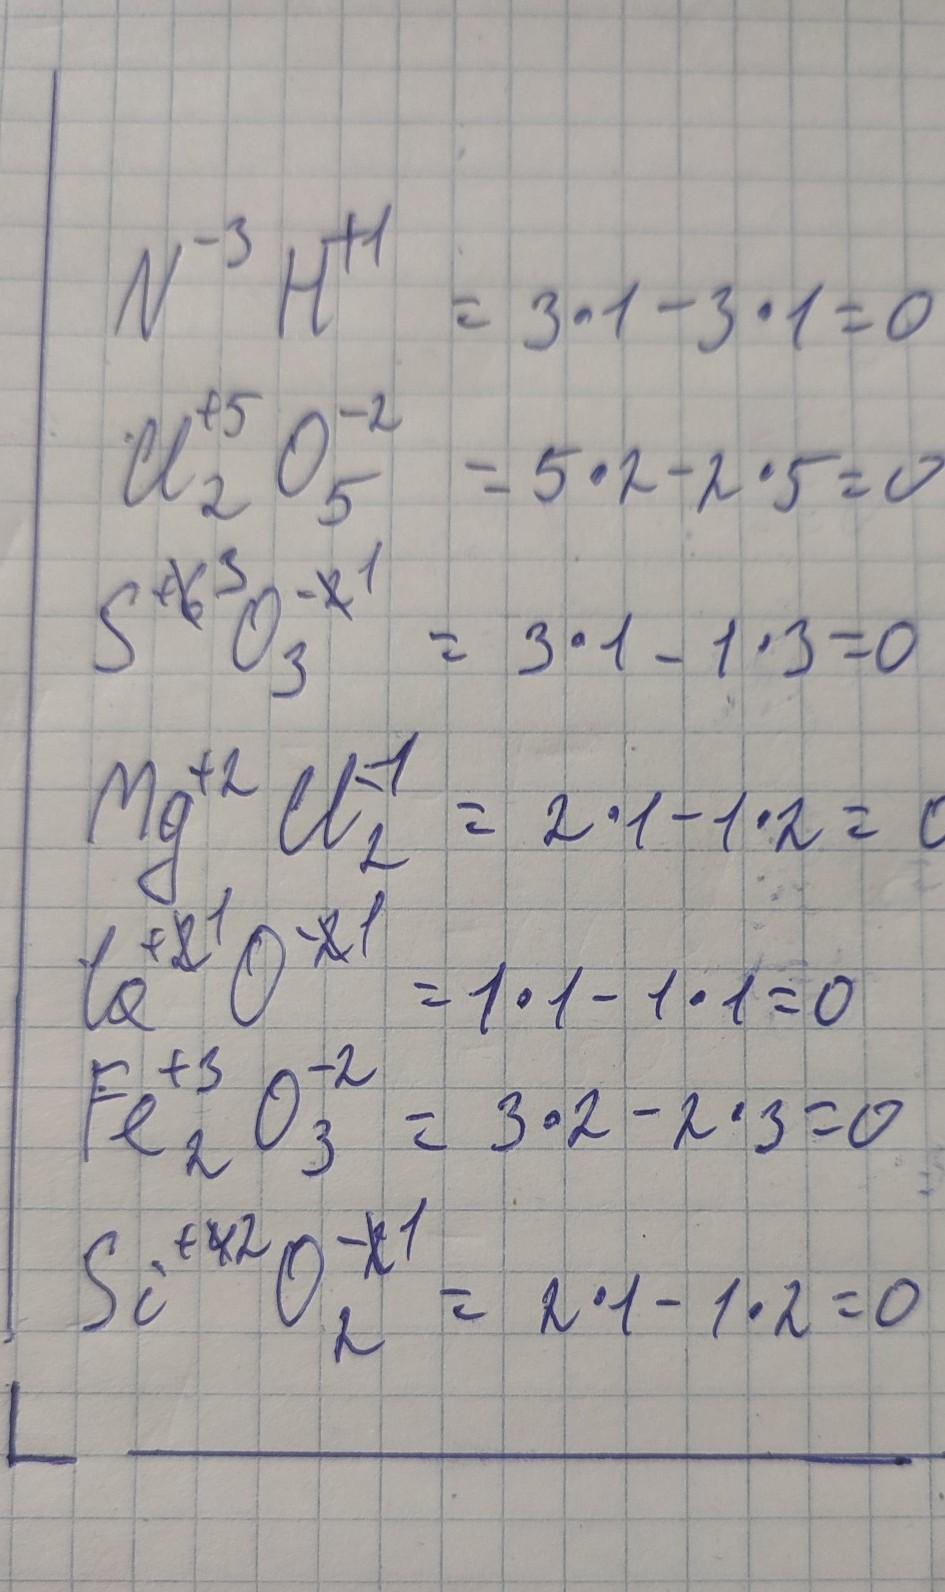 N⁻³ H⁺¹ = 3·1-3·1=0
Cl₂⁺⁵ O₅⁻² = 5·2-2·5=0
S⁺³ O₃⁻¹ = 3·1-1·3=0
Mg⁺² Cl₂⁻¹ = 2·1-1·2=0
Ca⁺¹ O⁻¹ = 1·1-1·1=0
Fe₂⁺³ O₃⁻² = 3·2-2·3=0
Si⁺² O₂⁻¹ = 2·1-1·2=0